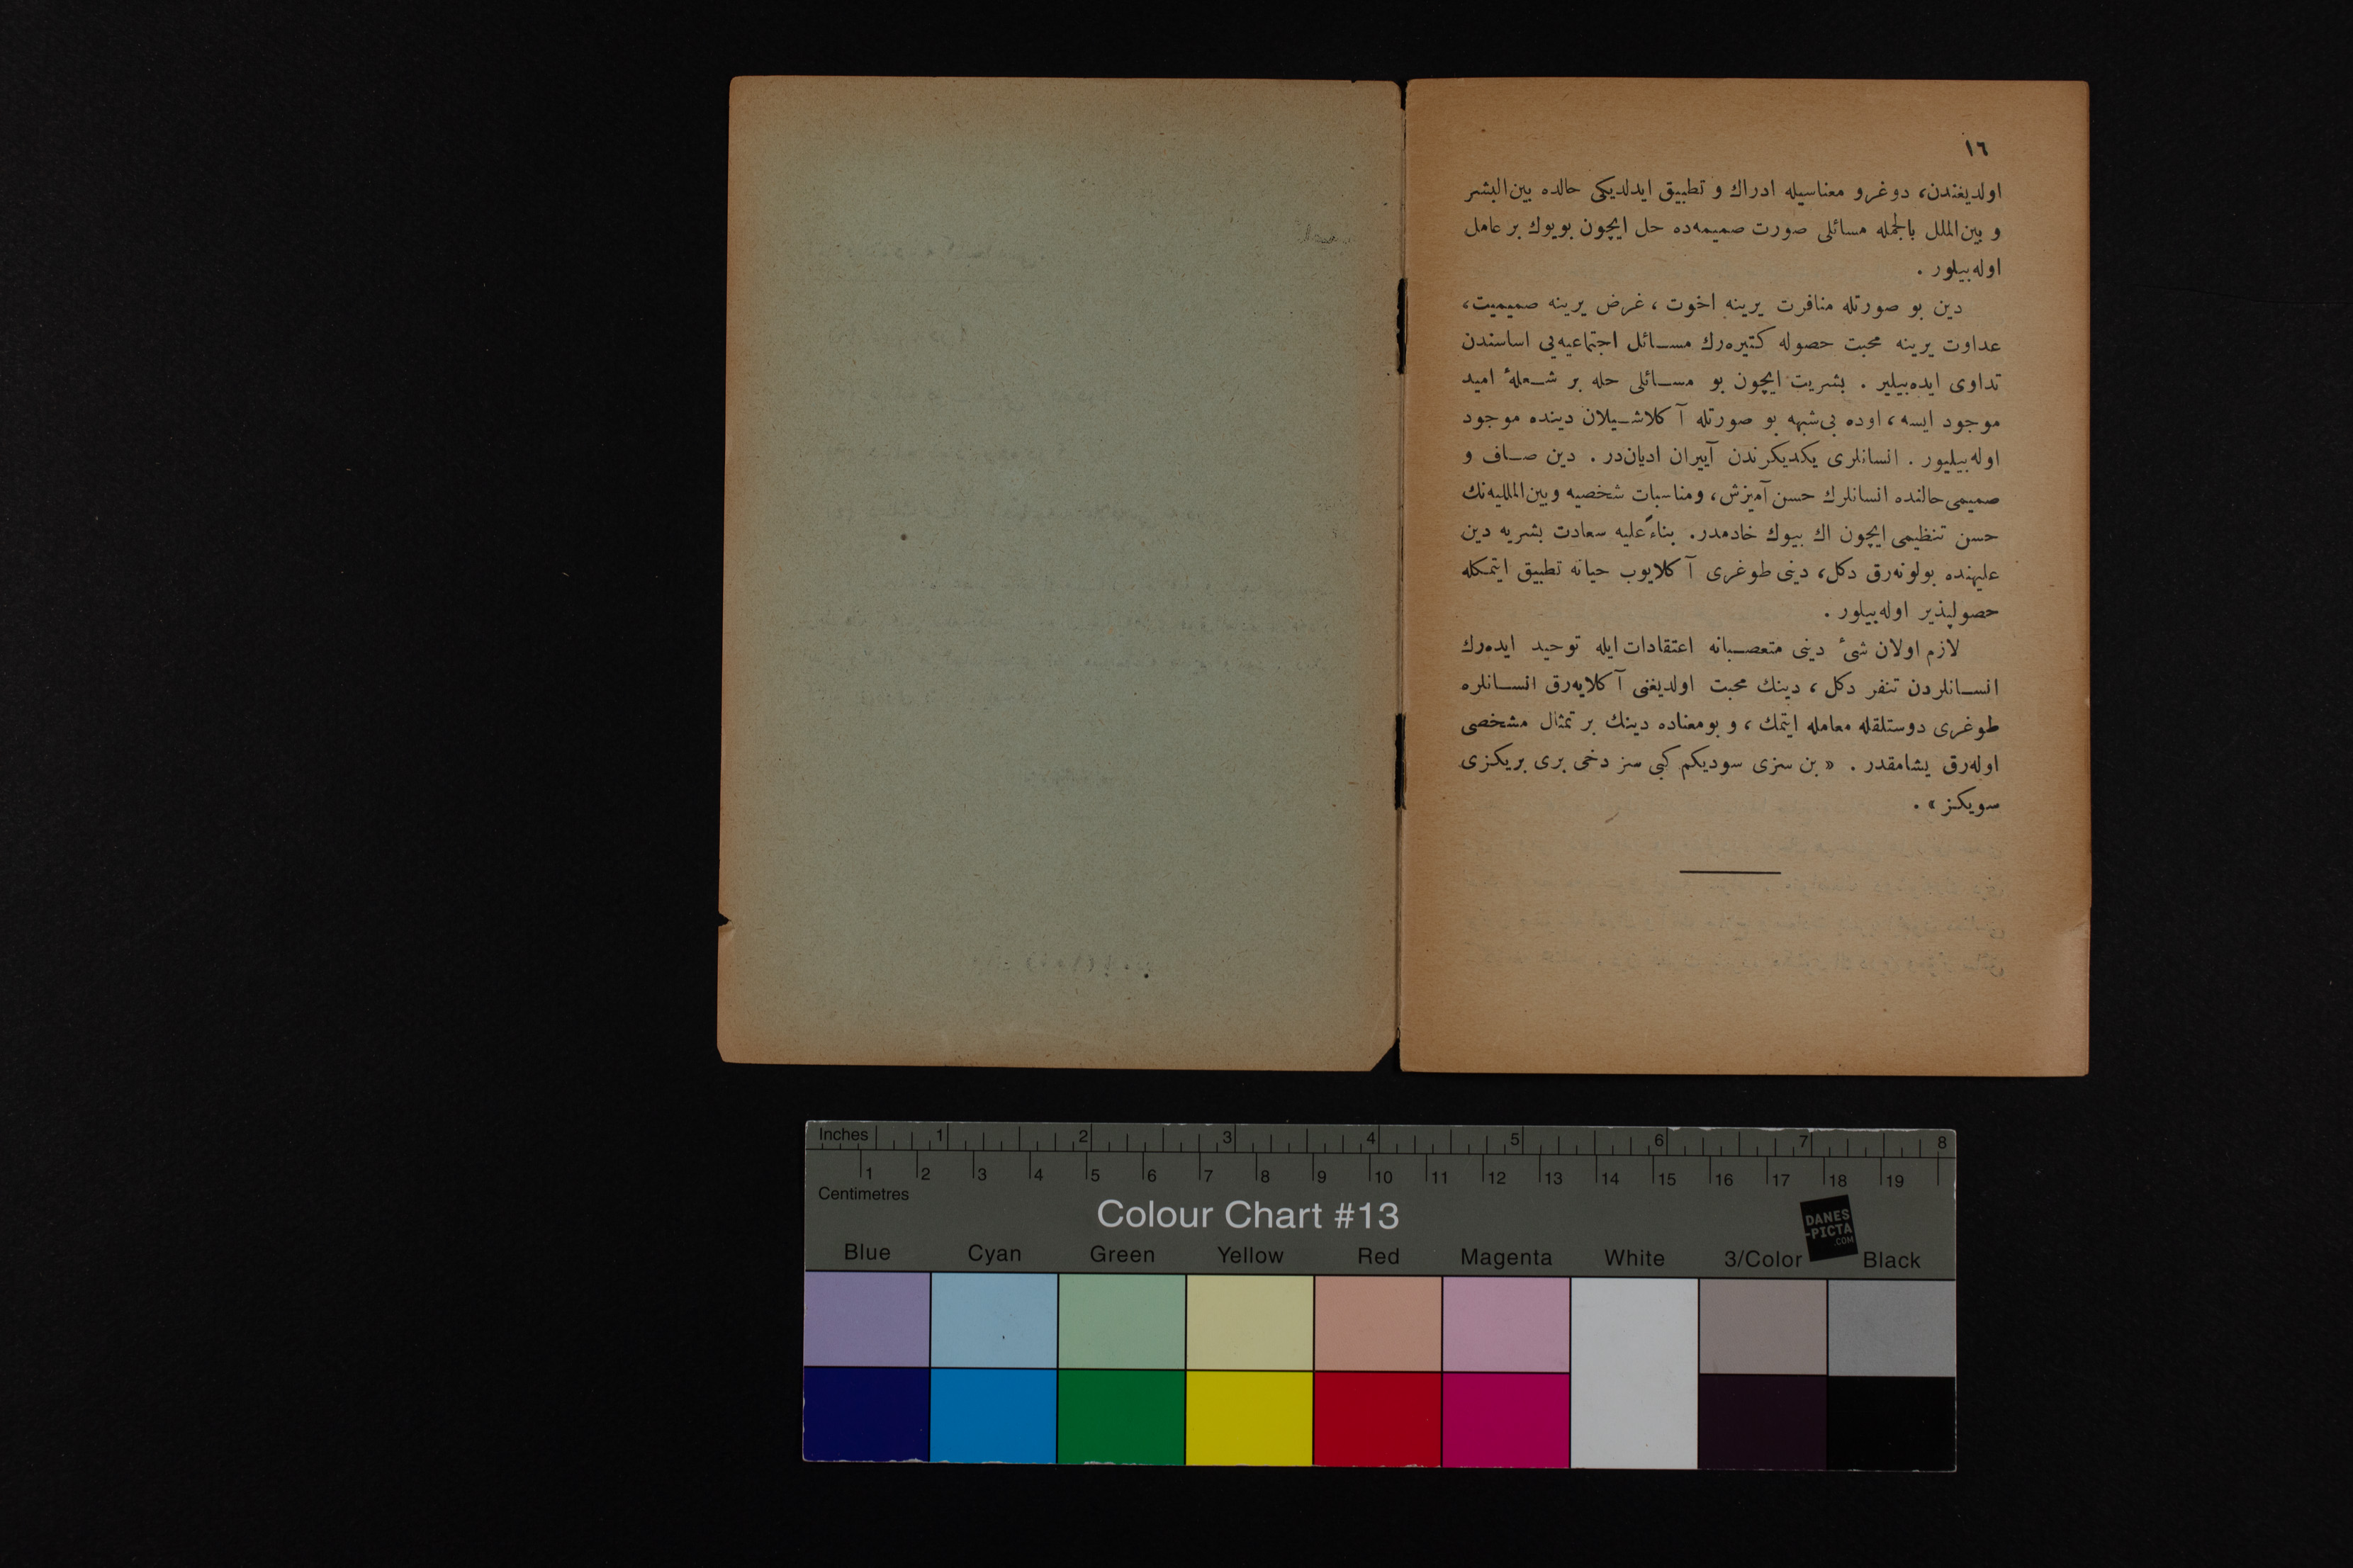 ١٦
اولدیغندن، دوغرو معناسیله ادراك و تطبیق ایدلدیكی حالده بین‌البشر
و بین‌الملل بالجمله مسائلی صورت صمیمه‌ده حل ایچون بویوك بر عامل
اوله‌بیلور .
دین بو صورتله منافرت یرینه اخوت ، غرض یرینه صمیمیت،
عداوت یرینه محبت حصوله كتیره‌رك مسائل اجتماعیه‌یی اساسندن
تداوی ایده‌بیلیر . بشریت ایچون بو مسائلی حله بر شعلهٔ امید
موجود ایسه ، اوده بی‌شبهه بو صورتله آكلاشیلان دینده موجود
اوله‌بیلیور . انسانلری یكدیكرندن آییران ادیان‌در . دین صاف و
صمیمی حالنده انسانلرك حسن آمیزش، ومناسبات شخصیه وبین‌المللیه‌نك
حسن تنظیمی ایچون اك بیوك خادمدر. بناءً علیه سعادت بشریه دین
علیهنده بولونه‌رق دكل، دینی طوغری آكلایوب حیاته تطبیق ایتمكله
حصولپذیر اوله‌بیلور .
لازم اولان شیٔ دینی متعصبانه اعتقادات ایله توحید ایده‌رك
انسانلردن تنفر دكل ، دینك محبت اولدیغنی آكلایه‌رق انسانلره
طوغری دوستلقله معامله ایتمك ، و بومعناده دینك بر تمثال مشخصی
اوله‌رق یشامقدر . « بن سزی سودیكم كبی سز دخی بری بریكزی
سویكز » .
Inches 1 2 3 4 5 6 7 8
1 2 3 4 5 6 7 8 9 10 11 12 13 14 15 16 17 18 19
Centimetres
Colour Chart #13
DANES
-PICTA
.COM
Blue Cyan Green Yellow Red Magenta White 3/Color Black